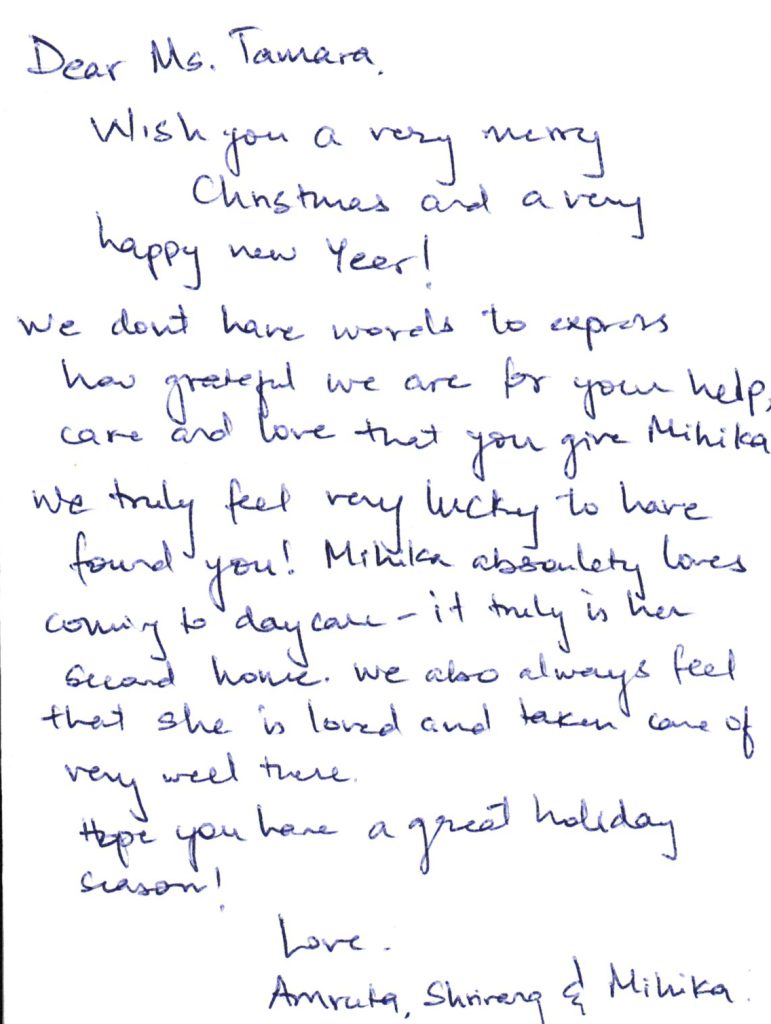 Dear Ms. Tamara,
Wish you a very merry
Christmas and a very
happy new Year!
We don't have words to express
how grateful we are for your help,
care and love that you give Mihika
We truly feel very lucky to have
found you! Mihika absoulety loves
coming to daycare - it truly is her
second home. We also always feel
that she is loved and taken care of
very well there.
Hope you have a great holiday
season!
Love.
Amruta, Shrirang & Mihika.